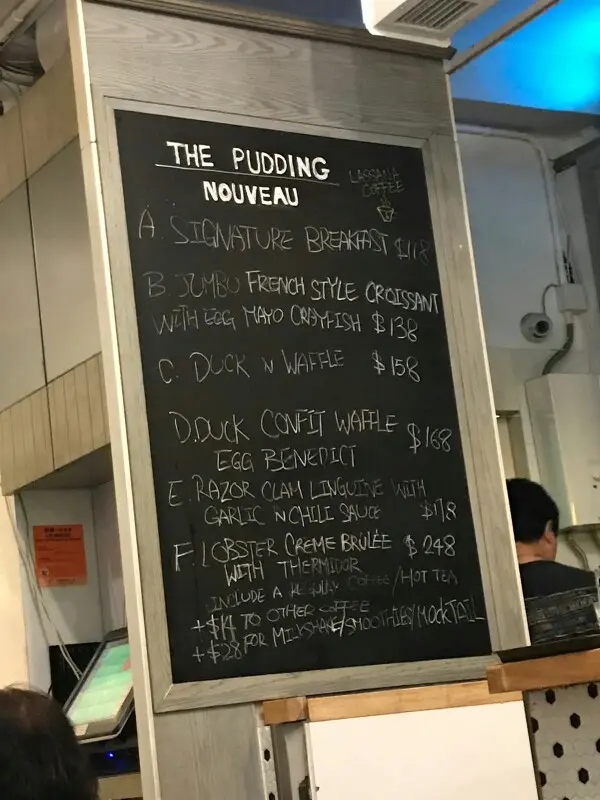 THE PUDDING
NOUVEAU
LASSANA
COFFEE
A. SIGNATURE BREAKFAST $118
B. JUMBO FRENCH STYLE CROISSANT
WITH EGG MAYO CRAYFISH $138
C. DUCK N WAFFLE $158
D. DUCK CONFIT WAFFLE $168
EGG BENEDICT
E. RAZOR CLAM LINGUINE WITH
GARLIC N CHILI SAUCE $178
F. LOBSTER CREME BRÛLÉE $248
WITH THERMIDOR
INCLUDE A REGULAR COFFEE/HOT TEA
+$14 TO OTHER COFFEE
+$28 FOR MILKSHAKE/SMOOTHIES/MOCKTAIL